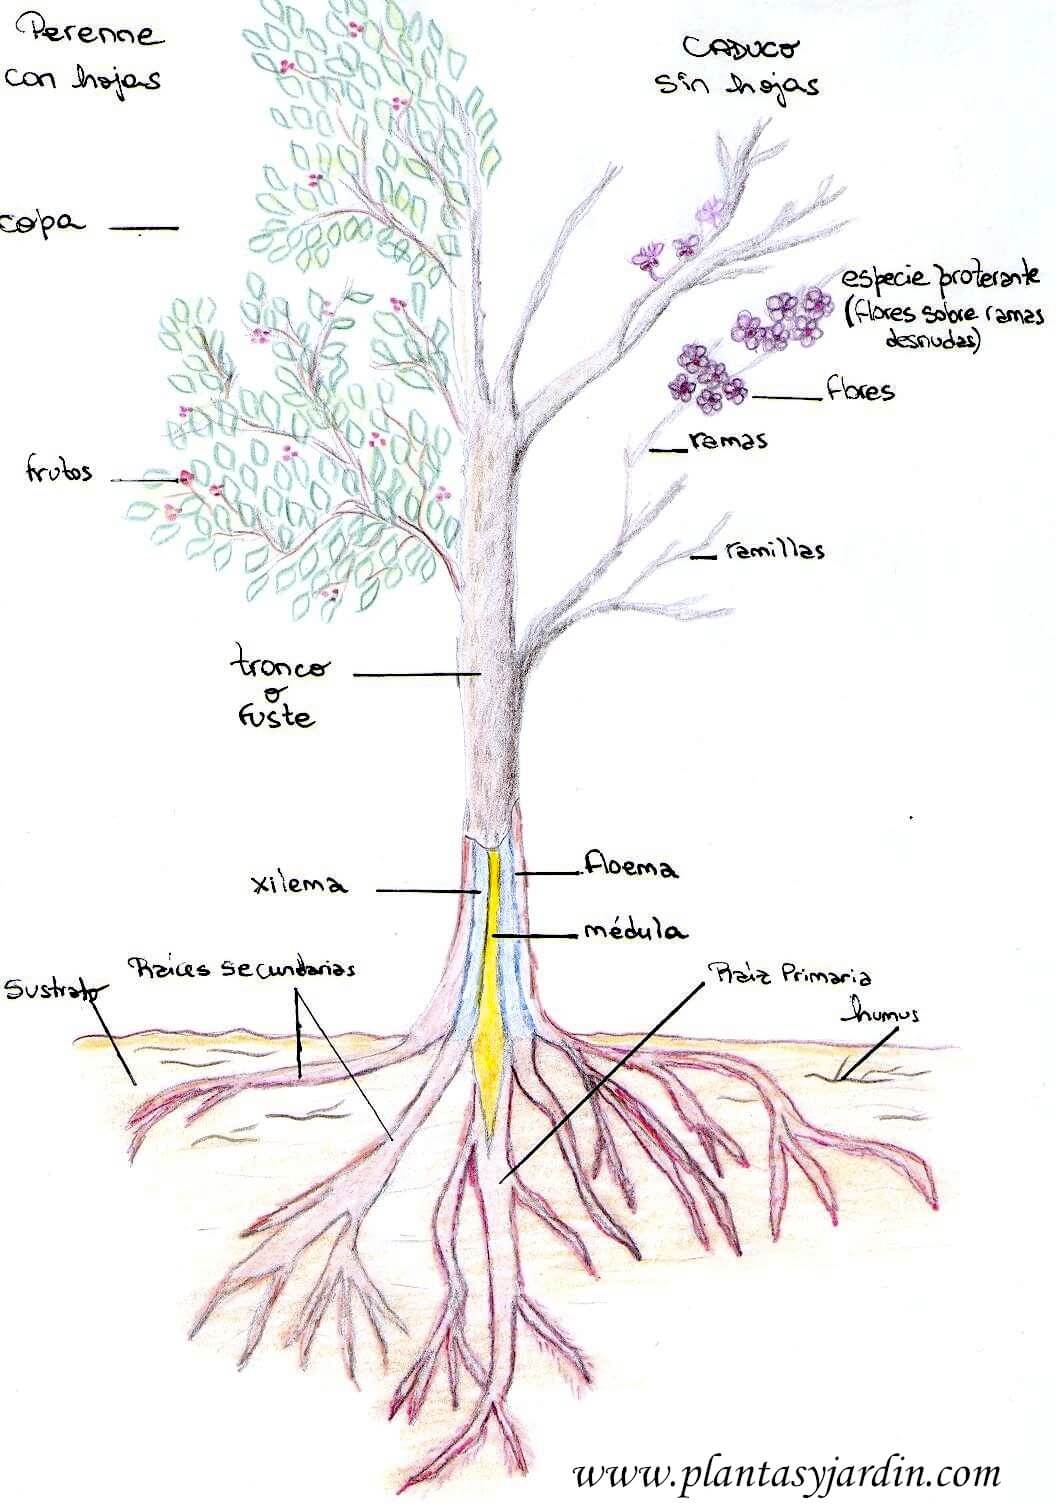 Perenne
con hojas
CADUCO
sin hojas
copa
especie proterante
(flores sobre ramas
desnudas)
flores
ramas
frutos
ramillas
tronco
o
fuste
xilema
floema
médula
Raíces secundarias
Sustrato
Raíz Primaria
humus
www.plantasyjardin.com